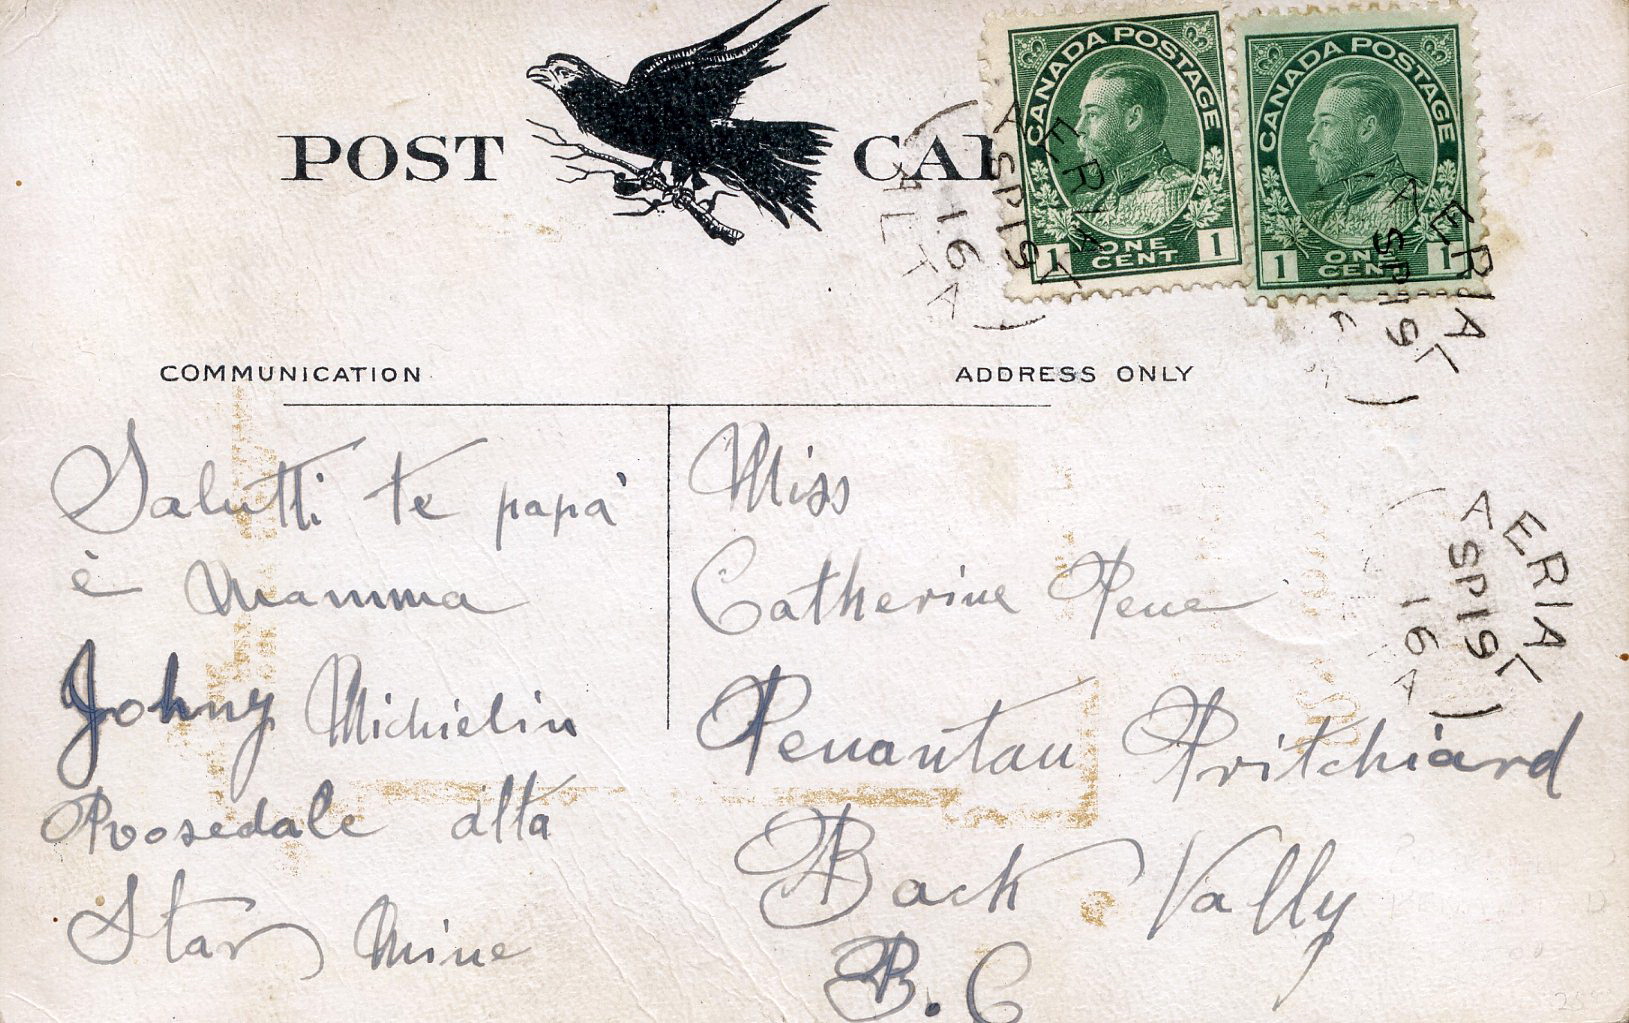 POST CAR
CANADA POSTAGE
1 ONE CENT 1
CANADA POSTAGE
1 ONE CENT 1
AERIAL
A
SP 19
16
ALTA
AERIAL
A
SP 19
AERIAL
A
SP 19
16
A
COMMUNICATION
ADDRESS ONLY
Salutti te papà
è Mamma
Johny Michielin
Rosedale alta
Star Mine
Miss
Catherine Pene
Penantau Pritchiard
Back Vally
B. C